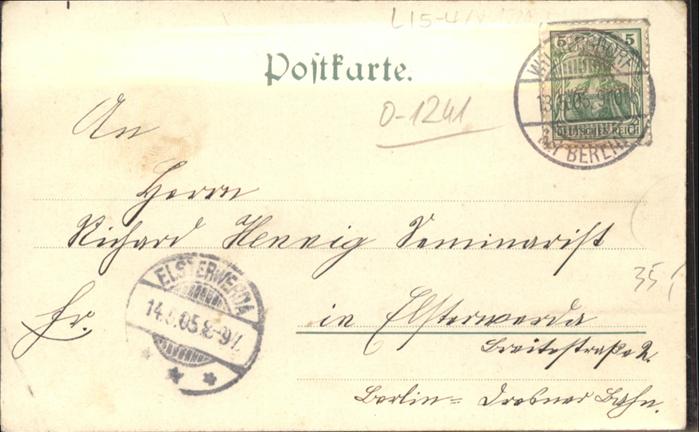 L15-4
Postkarte.
5 5
DEUTSCHES REICH
WILMERSDORF
13.5.05.9-10
BERLIN
O-1241
An
Herrn
Richard Hennig Seminarist
Fr.
in Elsterwerda
Breitestraße 2.
Berlin = Dresdner Bahn.
ELSTERWERDA
14.5.05.8-9V.
35